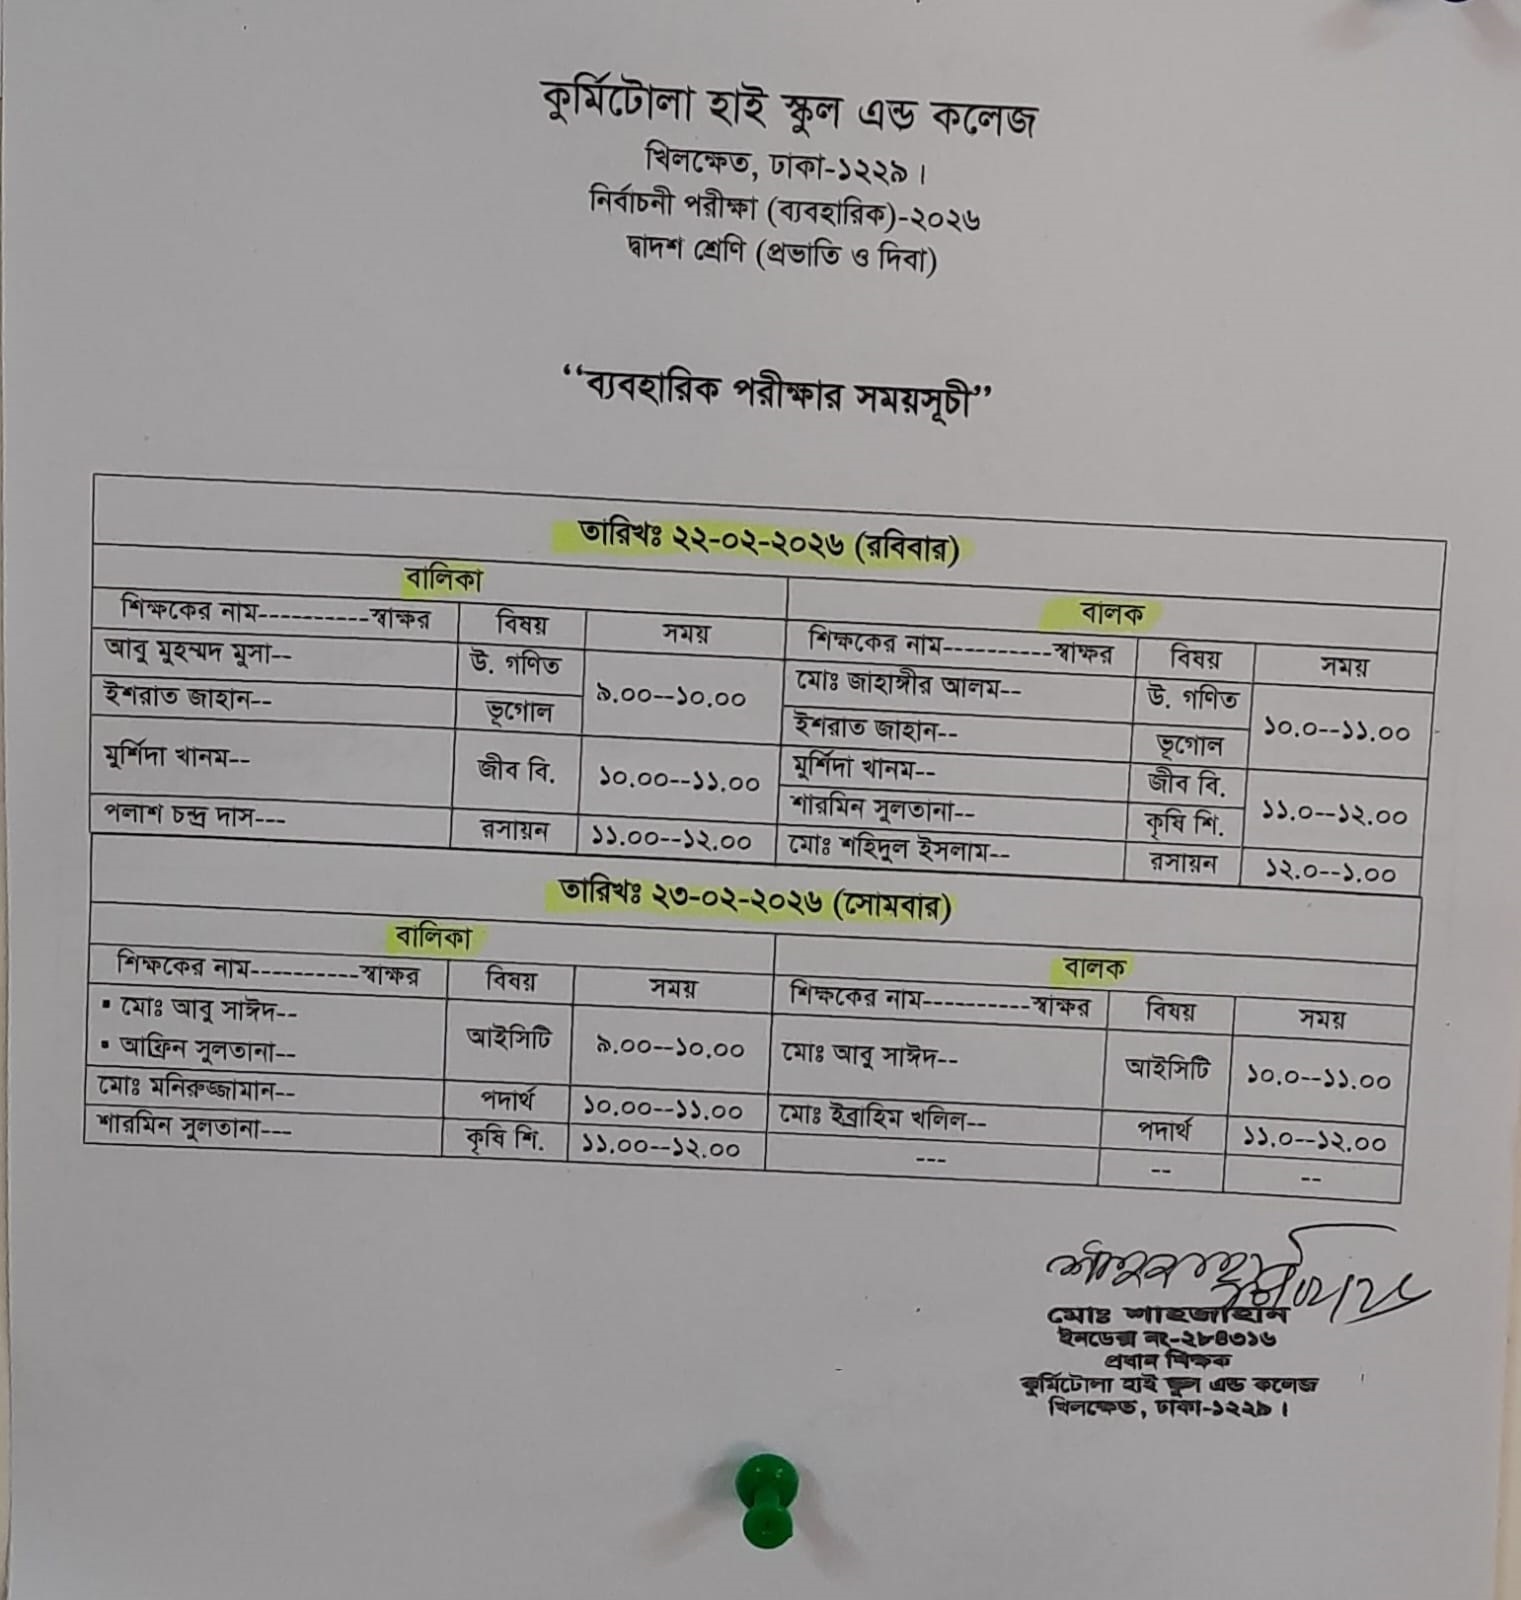 কুর্মিটোলা হাই স্কুল এন্ড কলেজ
খিলক্ষেত, ঢাকা-১২২৯।
নির্বাচনী পরীক্ষা (ব্যবহারিক)-২০২৬
দ্বাদশ শ্রেণি (প্রভাতি ও দিবা)
“ব্যবহারিক পরীক্ষার সময়সূচী”
তারিখঃ ২২-০২-২০২৬ (রবিবার)
বালিকা বালক
শিক্ষকের নাম----------স্বাক্ষর বিষয় সময় শিক্ষকের নাম----------স্বাক্ষর বিষয় সময়
আবু মুহম্মদ মুসা-- উ. গণিত ৯.০০--১০.০০ মোঃ জাহাঙ্গীর আলম-- উ. গণিত ১০.০--১১.০০
ইশরাত জাহান-- ভূগোল ইশরাত জাহান-- ভূগোল
মুর্শিদা খানম-- জীব বি. ১০.০০--১১.০০ মুর্শিদা খানম-- জীব বি. ১১.০--১২.০০
শারমিন সুলতানা-- কৃষি শি.
পলাশ চন্দ্র দাস--- রসায়ন ১১.০০--১২.০০ মোঃ শহিদুল ইসলাম-- রসায়ন ১২.০--১.০০
তারিখঃ ২৩-০২-২০২৬ (সোমবার)
বালিকা বালক
শিক্ষকের নাম----------স্বাক্ষর বিষয় সময় শিক্ষকের নাম----------স্বাক্ষর বিষয় সময়
▪ মোঃ আবু সাঈদ-- আইসিটি ৯.০০--১০.০০ মোঃ আবু সাঈদ-- আইসিটি ১০.০--১১.০০
▪ আফ্রিন সুলতানা--
মোঃ মনিরুজ্জামান-- পদার্থ ১০.০০--১১.০০ মোঃ ইব্রাহিম খলিল-- পদার্থ ১১.০--১২.০০
শারমিন সুলতানা--- কৃষি শি. ১১.০০--১২.০০ --- -- --
মোঃ শাহজাহান
ইনডেক্স নং-২৮৪৩১৬
প্রধান শিক্ষক
কুর্মিটোলা হাই স্কুল এন্ড কলেজ
খিলক্ষেত, ঢাকা-১২২৯।